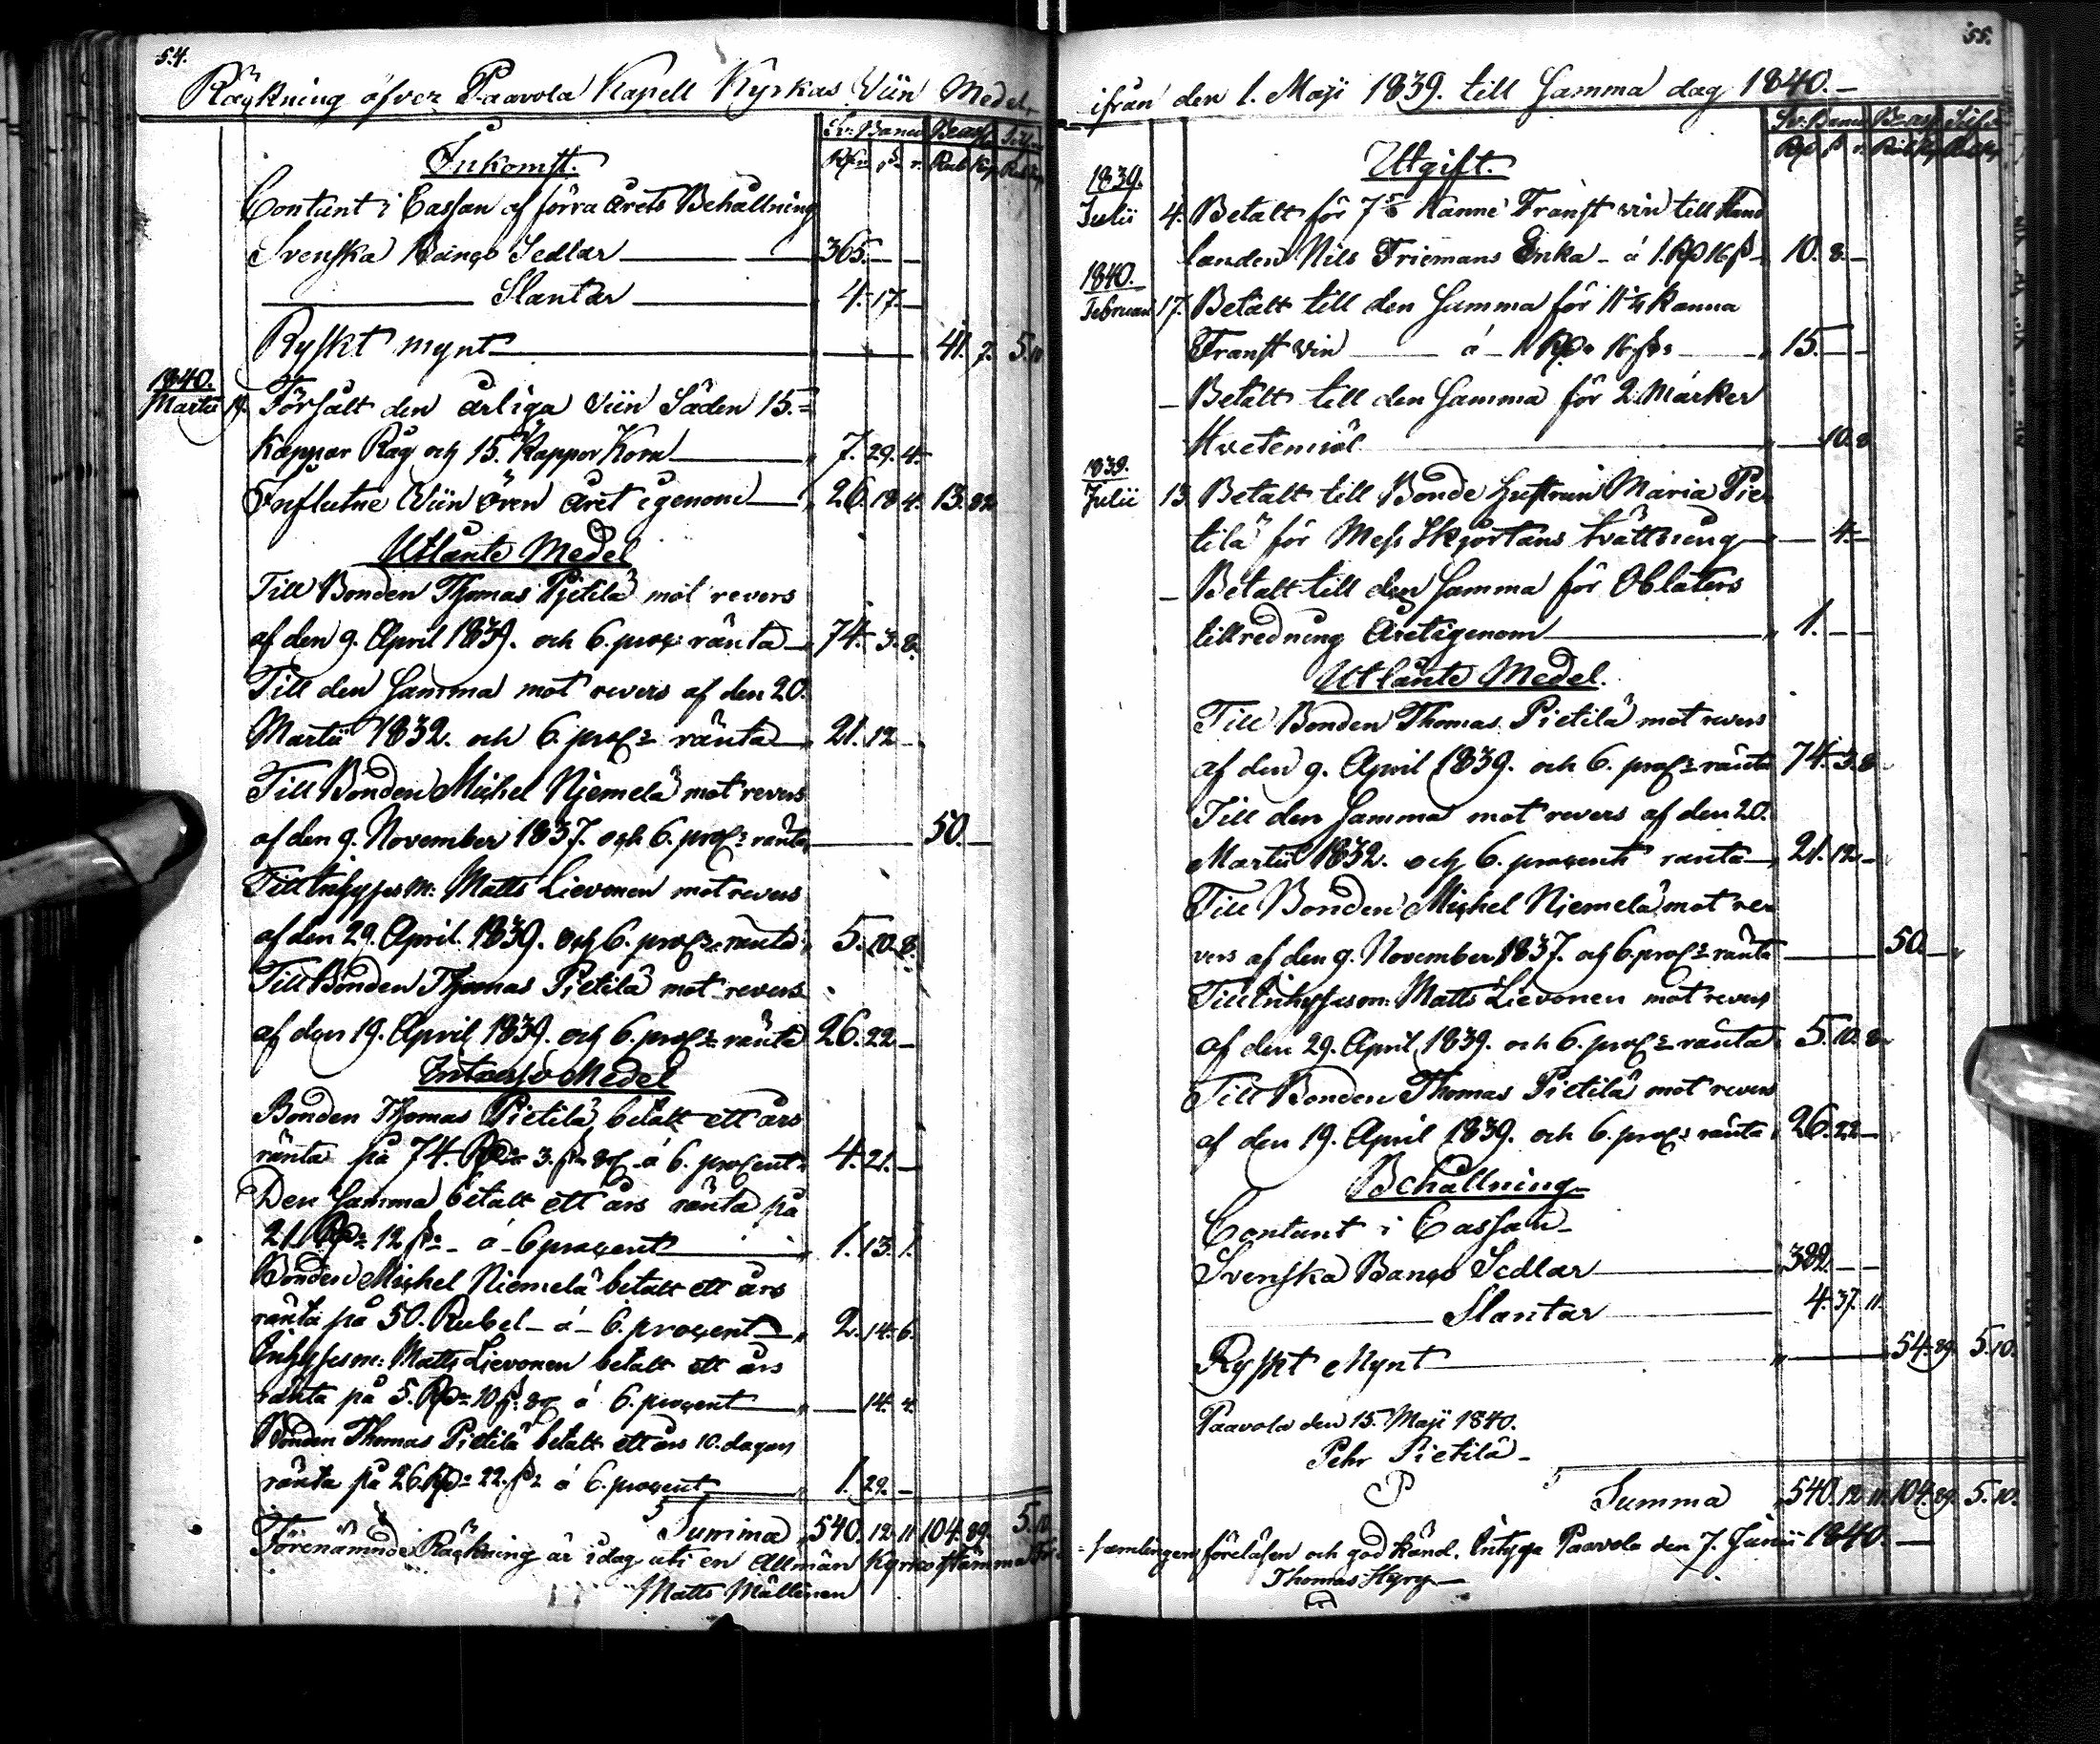 54.
Räkning öfver Paavola Kapell Kyrkas Viin Medel,
Sv: Banco Beass. Silfver
Rd. ß. r. Rub. Kop. Rub. Kop.
Inkomst.
Contant i Cassan af förra årets Behållning
Svenska Banço Sedlar 365. — —
Slantar 4. 17. —
Ryskt mynt 41. 7. 5. 10
1840.
Martii 19. Försålt den årliga Viin Säden 15.=
Kappar Råg och 15. Kappor Korn 7. 29. 4.
Influtne Viin ören året igenom 26. 18. 4. 13. 82
Utlånte Medel
Till Bonden Thomas Pietilä mot revers
af den 9. April 1839. och 6. proç: ränta 74. 3. 8.
Till den Samma mot revers af den 20.
Martii 1832. och 6. proç: ränta 21. 12 —
Till Bonden Michel Niemelä mot revers
af den 9. November 1837. och 6. proç: ränta 50. —
Till Inhysesm: Matts Lievonen mot revers
af den 29. April 1839. och 6. proç: ränta 5. 10. 8.
Till Bonden Thomas Pietilä mot revers
af den 19. April 1839. och 6. proç: ränta 26. 22 —
Intresse Medel
Bonden Thomas Pietilä betalt ett års
ränta på 74. Rd: 3. ß 8 r. á 6. proçent 4. 21. —
Den Samma betalt ett års ränta på
21 Rd: 12 ß: á 6 proçent 1. 13. 1.
Bonden Michel Niemelä betalt ett års
ränta på 50. Rubel á 6. proçent 2. 14. 6.
Inhysesm: Matts Lievonen betalt ett års
ränta på 5. Rd: 10 ß. 8 r á 6. proçent — 14. 4.
Bonden Thomas Pietilä betalt ett års 10. dagars
ränta på 26 Rd: 22. ß: á 6. proçent 1. 29. —
Summa 540. 12. 11 104. 89. 5. 10
Förenämnde Räkning är idag uti en Allmän Kyrkostämma
Matts Mällinen
55.
ifrån den 1. Maji 1839. till Samma dag 1840. —
Sv: Banco Beass. Silfver
Rd ß r. Rub. Kop. Rub. Kop.
Utgift.
1839.
Julii 4. Betalt för 7 5/8 Kanne Franst vin till Hand
landen Nils Friemans Enka á 1. Rd 16 ß 10. 8. —
1840.
Februari 17. Betalt till den Samma för 11 1/4 Kanna
Franst vin á 1 Rd: 16 ß: 15. — —
— Betalt till den Samma för 2. Marker
Hvetemjöl — 10. 8
1839.
Julii 13. Betalt till Bonde Hustrun Maria Pie-
tilä för Mess Skjortans tvättning — 4. —
— Betalt till den Samma för Oblaters
tillredning Åretigenom 1. — —
Utlånte Medel.
Till Bonden Thomas Pietilä mot revers
af den 9. April 1839. och 6. proç: ränta 74. 3. 8.
Till den Samma mot revers af den 20.
Martii 1832. och 6. proçents ränta 21. 12. —
Till Bonden Michel Niemelä mot re-
vers af den 9. November 1837. och 6. proç: ränta 50. —
Till Inhysesm: Matts Lievonen mot revers
af den 29. April 1839. och 6. proç: ränta 5. 10. 8.
Till Bonden Thomas Pietilä mot revers
af den 19. April 1839. och 6. proç: ränta 26. 22 —
Behållning
Contant i Cassan
Svenska Banço Sedlar 382. — —
Slantar 4. 37. 11.
Ryskt Mynt 54. 89. 5. 10.
Paavola den 15. Maji 1840.
Pehr Pietilä
P
Summa 540. 12. 11. 104. 89. 5. 10.
samlingen föreläsen och god känd. Intyga Paavola den 7. Junii 1840. —
Thomas Hyry